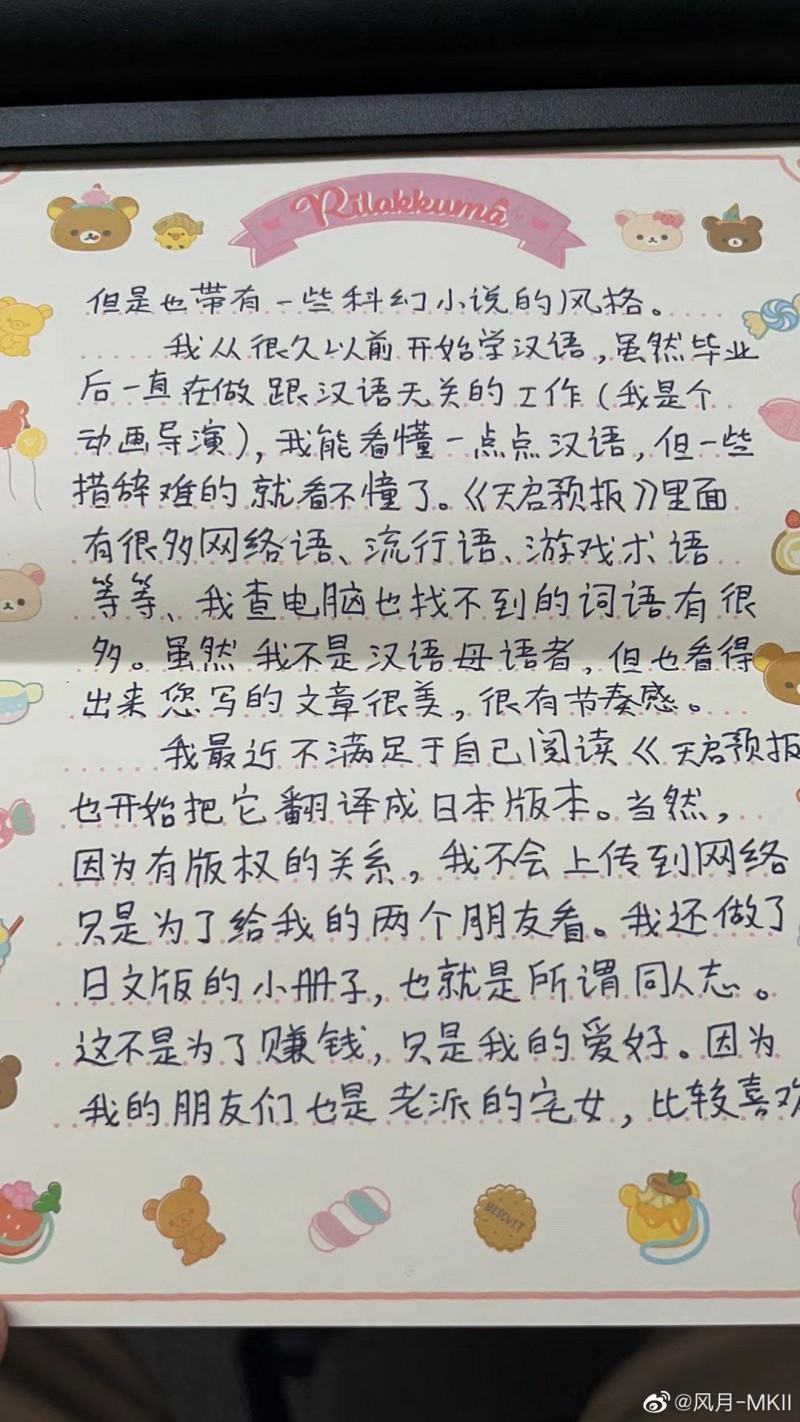 Rilakkuma
但是也带有一些科幻小说的风格。
我从很久以前开始学汉语,虽然毕业
后一直在做跟汉语无关的工作(我是个
动画导演),我能看懂一点点汉语,但一些
措辞难的就看不懂了。《天启预报》里面
有很多网络语、流行语、游戏术语
等等、我查电脑也找不到的词语有很
多。虽然我不是汉语母语者,但也看得
出来您写的文章很美,很有节奏感。
我最近不满足于自己阅读《天启预报
也开始把它翻译成日本版本。当然,
因为有版权的关系,我不会上传到网络
只是为了给我的两个朋友看。我还做了
日文版的小册子,也就是所谓同人志。
这不是为了赚钱,只是我的爱好。因为
我的朋友们也是老派的宅女,比较喜欢
BISCUIT
@风月-MKII